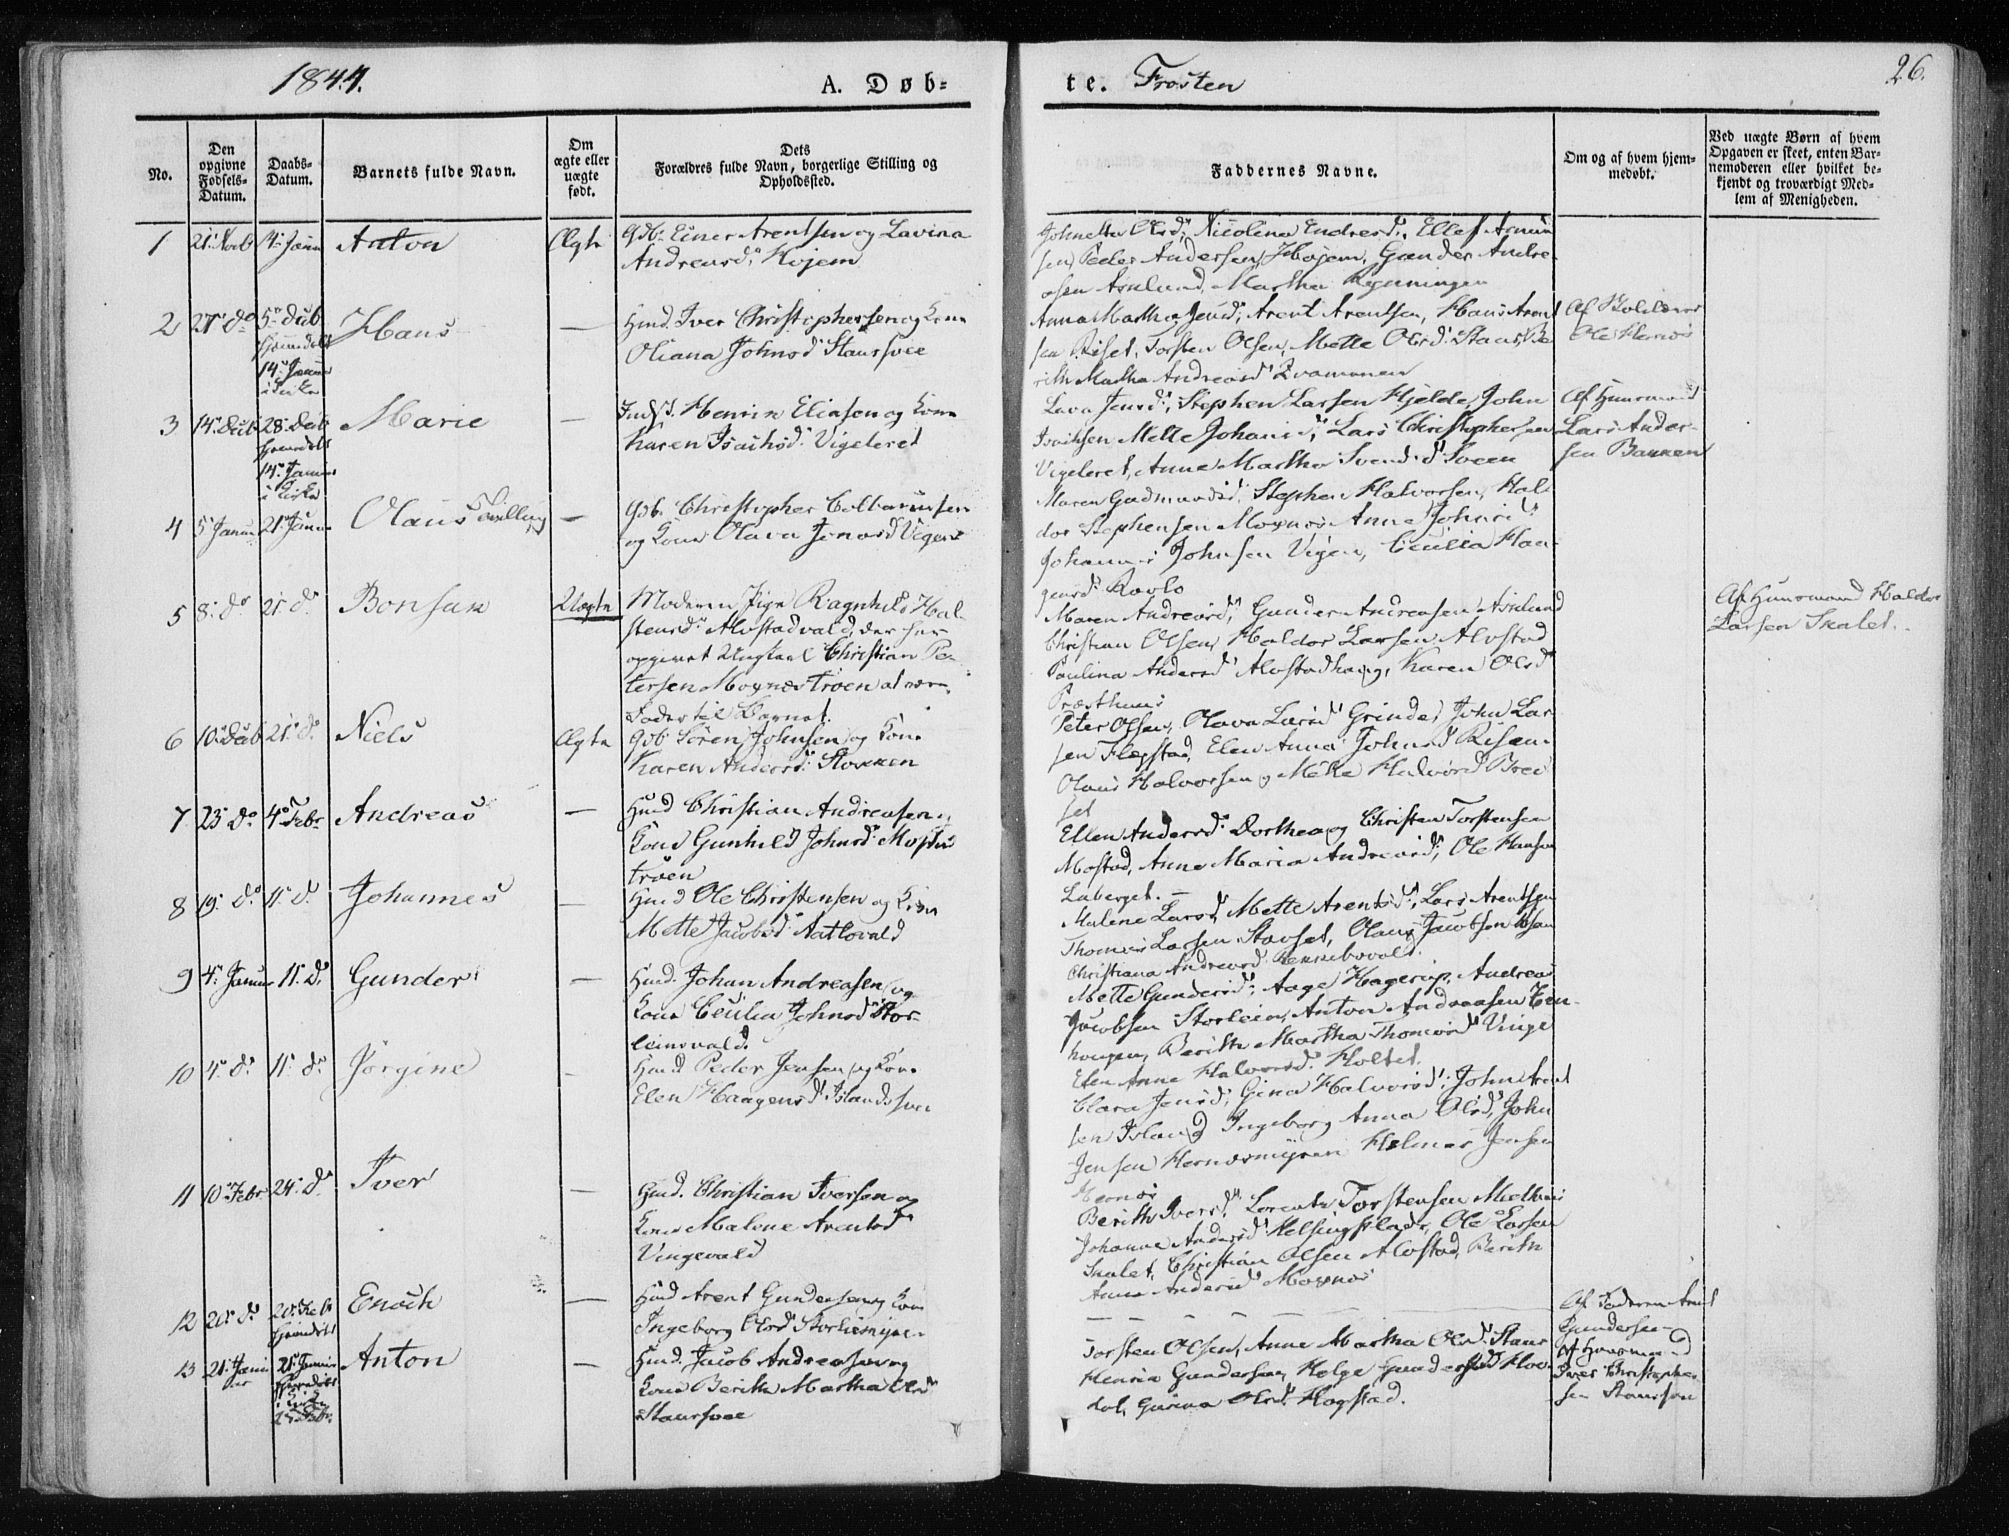 1844.
A. Døb=
te. Frosten
26.
No.
Den opgivne Fødsels-Datum.
Daabs-Datum.
Barnets fulde Navn.
Om ægte eller uægte født.
Dets
Forældres fulde Navn, borgerlige Stilling og
Opholdssted.
Faddernes Navne.
Om og af hvem hjem-
medøbt.
Ved uægte Børn af hvem
Opgaven er skeet, enten Bar-
nemoderen eller hvilket be-
kjendt og troværdigt Med-
lem af Menigheden.
1
Anton
Ægte
Gdb. Einer Arentsen og Lavina
Andreasd. Hojem
Peder Andersen Hojem, Gunder Andre-
asen Aselund, Martha
2 27 do
Hans
—
Hmd. Iver Christophersen og Kone
Oliana Johnsd. Staursvee
Anna Martha Jensd., Arent Arentsen, Hans Arent
sen Riset, Torsten Olsen, Mette Olsd. Staur, Be
rith Martha Andreasd.
3
Marie
—
Henrik Eliasen og Kone
Karen Isachsd. Vigeleret
Stephen Larsen Hjelde, John
Isachsen Mette Johansd., Lars Christophersen
Vigeleret, Anne Martha Svendsd. Sveen
Af Huusmand
Lars Ander-
sen Bakken
4 5 Januar 21 Januar
Olaus Tvilling
—
Gdb. Christopher
og Kone Olava Jonasd. Vigen
Maren Gudmundsd. Stephen Halvorsen, Hal
dor Stephensen Moxnes Anne Johnsd.
Johannes Johnsen Vigen, Cecilia Haa-
gensd. Ravlo
5 8. do 21. do
Uægte
Moderen Pige Ragnhild Hal-
stensd. Alvstadvald, der har
opgivet Ungkarl Christian Pe-
tersen Moxnestrøen at være
Fader til Barnet.
Maren Andreasd., Gunder Andreasen Aselund
Christian Olsen, Haldor Larsen Alvstad
Paulina Andersd. Alvstadhaug, Karen Olsd.
Præsthuus
Af Huusmand Haldor
Larsen Skalet.
6 10. Decb 21. do
Niels
Ægte
Gdb. Søren Johnsen og Kone
Karen Andersd.
Peter Olsen, Olava Larsd. Grinde, John Lar-
sen Flægstad, Elen Anna Johnsd.
Olaus Halvorsen og Mette Halvorsd. Brei
set
7 23 do 4. Febr
Andreas
—
Hmd Christian Andreasen
Kone Gunhild Johnsd.
trøen
Ellen Andersd. Dorthea og Christen Torstensen
Mostad, Anne Maria Andreasd., Ole Hansen
Laberget. —
8 19. do 11. do
Johannes
—
Hmd Ole Christensen og Kone
Mette Jacobsd. Aatlovald
Malene Larsd. Mette Arentsd., Lars Arentsen
Thomas Larsen Stavset, Olaus Jacobsen
Christiana Andreasd.
9 4. Januar 11. do
Gunder
—
Hmd. Johan Andreasen og
Kone Cecilia Johnsd. Stor-
leinsvald.
Mette Gundersd., Aage Hagerup, Andreas
Jacobsen Storlein, Anton Andreasen
haugen, Berith Martha Thomasd. Vinge
10 4. do 11. do
Jørgine
—
Hmd Peder Jensen og Kone
Elen Haagensd. Islandsvee
Elen Anne Halvorsd. Holtet.
Clara Jensd., Gina Halvorsd., John Arent
sen Island, Ingeborg Anna Olsd., John
Jensen Hernesmyren Helmer Jensen
Hernes
11 10. Febr 24. do
Iver
—
Hmd. Christian Iversen og
Kone Malene Arentsd.
Vingevald
Berith Iversd. Lorents Torstensen
Johanne Andersd. Helsingplads, Ole Larsen
Skalet, Christian Olsen Alvstad, Berith
Anna Andersd. Moxnes
12 20. do
Enoch
—
Hmd Arent Gundersen og Kone
Ingeborg Olsd. Storleimyr-
— — —
Af Faderen Arent
Gundersen
13
Anton
—
Hmd. Jacob Andreasen og
Kone Berith Martha Olsd.
Staursvee
Torsten Olsen, Anne Martha Olsd. Staur
Henrik Gundersen, Helge Gundersen
Gurina Olsd. Hogstad.
Af Huusmand
Iver Christopher
sen Staursvee